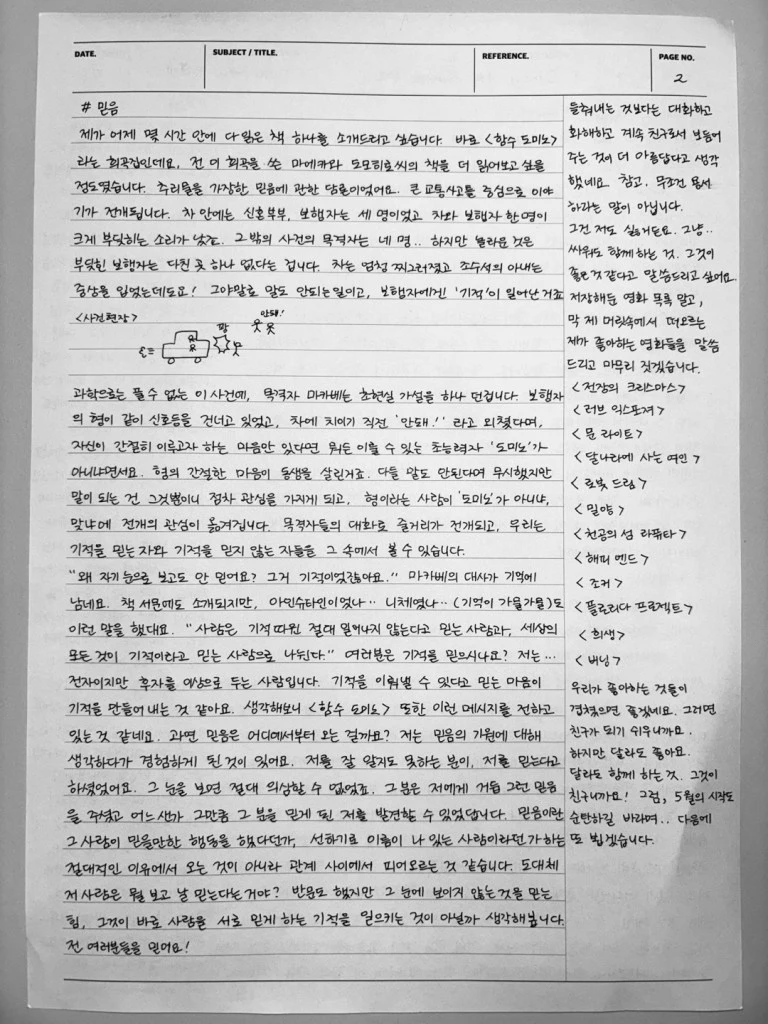 DATE.
SUBJECT / TITLE.
REFERENCE.
PAGE NO.
2
# 믿음
제가 어제 몇 시간 안에 다 읽은 책 하나를 소개드리고 싶습니다. 바로 <함수 도미노>
라는 희곡집인데요, 전 이 희곡을 쓴 마에카와 도모히로씨의 책을 더 읽어보고 싶을
정도였습니다. 추리물을 가장한 믿음에 관한 담론이었어요. 큰 교통사고를 중심으로 이야
기가 전개됩니다. 차 안에는 신혼부부, 보행자는 세 명이었고 차와 보행자 한명이
크게 부딪히는 소리가 났죠. 그밖의 사건의 목격자는 네 명.. 하지만 놀라운 것은
부딪힌 보행자는 다친 곳 하나 없다는 겁니다. 차는 엄청 찌그러졌고 조수석의 아내는
중상을 입었는데도요! 그야말로 말도 안되는 일이고, 보행자에겐 '기적'이 일어난 거죠
<사건현장>
쾅
안돼!
과학으로는 풀 수 없는 이 사건에, 목격자 마카베는 초현실 가설을 하나 던집니다. 보행자
의 형이 같이 신호등을 건너고 있었고, 차에 치이기 직전 '안돼!' 라고 외쳤다며,
자신이 간절히 이루고자 하는 마음만 있다면 뭐든 이룰 수 있는 초능력자 '도미노'가
아니냐면서요. 형의 간절한 마음이 동생을 살린거죠. 다들 말도 안된다며 무시했지만
말이 되는 건 그것뿐이니 점차 관심을 가지게 되고, 형이라는 사람이 '도미노'가 아니냐,
맞냐에 전개의 관심이 옮겨집니다. 목격자들의 대화로 줄거리가 전개되고, 우리는
기적을 믿는 자와 기적을 믿지 않는 자들을 그 속에서 볼 수 있습니다.
"왜 자기 눈으로 보고도 안 믿어요? 그거 기적이었잖아요." 마카베의 대사가 기억에
남네요. 책 서문에도 소개되지만, 아인슈타인이었나.. 니체였나.. (기억이 가물가물)도
이런 말을 했대요. "사람은 기적 따윈 절대 일어나지 않는다고 믿는 사람과, 세상의
모든 것이 기적이라고 믿는 사람으로 나뉜다." 여러분은 기적을 믿으시나요? 저는...
전자이지만 후자를 이상으로 두는 사람입니다. 기적을 이뤄낼 수 있다고 믿는 마음이
기적을 만들어 내는 것 같아요. 생각해보니 <함수 도미노> 또한 이런 메시지를 전하고
있는 것 같네요. 과연 믿음은 어디에서부터 오는 걸까요? 저는 믿음의 기원에 대해
생각하다가 경험하게 된 것이 있어요. 저를 잘 알지도 못하는 분이, 저를 믿는다고
하셨었어요. 그 눈을 보면 절대 의심할 수 없었죠. 그분은 저에게 거듭 그런 믿음
을 주셨고 어느샌가 그만큼 그 분을 믿게 된 저를 발견할 수 있었답니다. 믿음이란
그 사람이 믿을만한 행동을 했다던가, 선하기로 이름이 나 있는 사람이라던가 하는
절대적인 이유에서 오는 것이 아니라 관계 사이에서 피어오르는 것 같습니다. 도대체
저 사람은 뭘 보고 날 믿는다는 거야? 반문도 했지만 그 눈에 보이지 않는 것을 믿는
힘, 그것이 바로 사람을 서로 믿게 하는 기적을 일으키는 것이 아닐까 생각해봅니다.
전 여러분들을 믿어요!
들춰내는 것보다는 대화하고
화해하고 계속 친구로서 보듬어
주는 것이 더 아름답다고 생각
했네요. 참고, 무조건 용서
하라는 말이 아닙니다.
그건 저도 싫거든요. 그냥..
싸워도 함께 하는 것. 그것이
좋은 것 같다고 말씀드리고 싶어요.
저장해둔 영화 목록 말고,
막 제 머릿속에서 떠오르는
제가 좋아하는 영화들을 말씀
드리고 마무리 짓겠습니다.
<전장의 크리스마스>
<러브 익스포져>
<문 라이트>
<달나라에 사는 여인>
<로봇 드림>
<밀양>
<천공의 성 라퓨타>
<해피 엔드>
<조커>
<플로리다 프로젝트>
<희생>
<버닝>
우리가 좋아하는 것들이
겹쳤으면 좋겠네요. 그러면
친구가 되기 쉬우니까요.
하지만 달라도 좋아요.
달라도 함께 하는 것. 그것이
친구니까요! 그럼, 5월의 시작도
순탄하길 바라며.. 다음에
또 뵙겠습니다.